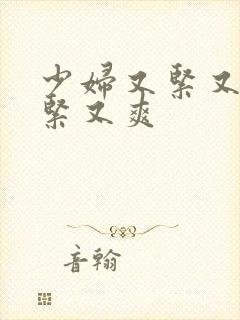 少婦又緊又
緊又爽
音翰